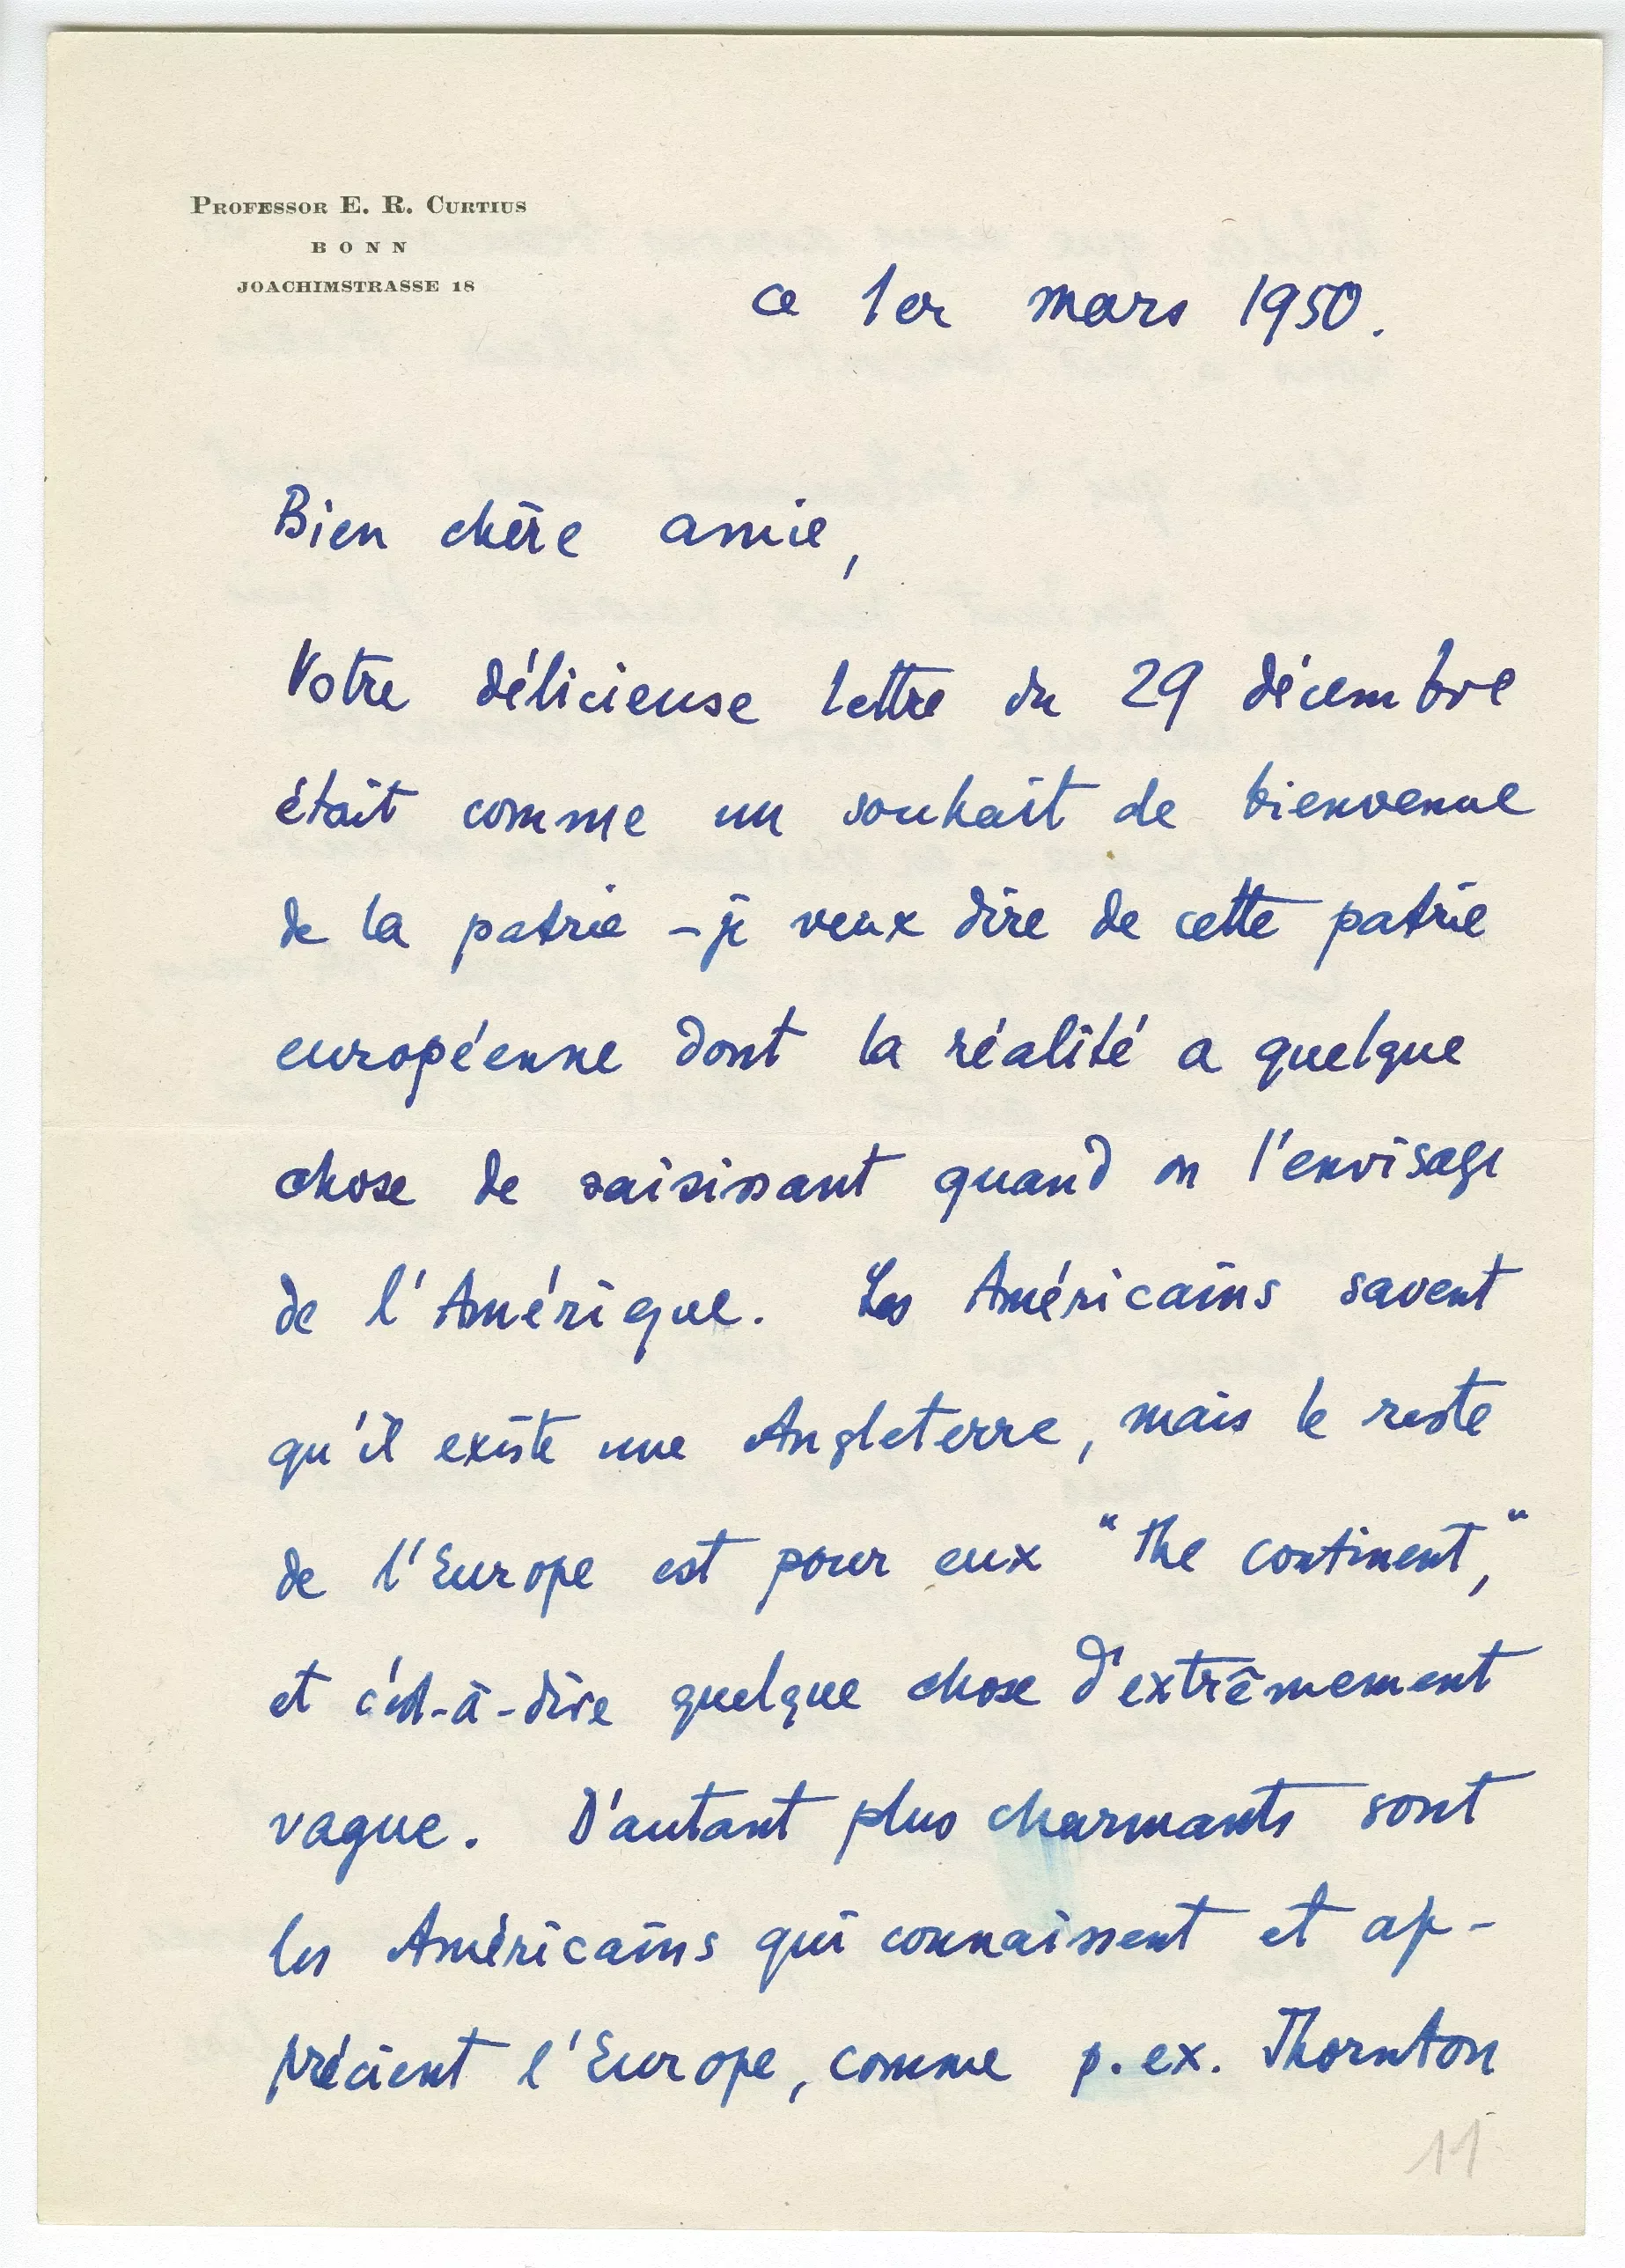 PROFESSOR E. R. CURTIUS
BONN
JOACHIMSTRASSE 18
ce 1er mars 1950.
Bien chère amie,
Votre délicieuse lettre du 29 décembre
était comme un souhait de bienvenue
de la patrie – je veux dire de cette patrie
européenne dont la réalité a quelque
chose de saisissant quand on l'envisage
de l'Amérique. Les Américains savent
qu'il existe une Angleterre, mais le reste
de l'Europe est pour eux "the continent,"
et c'est-à-dire quelque chose d'extrêmement
vague. D'autant plus charmants sont
les Américains qui connaissent et ap-
précient l'Europe, comme p. ex. Thornton
11